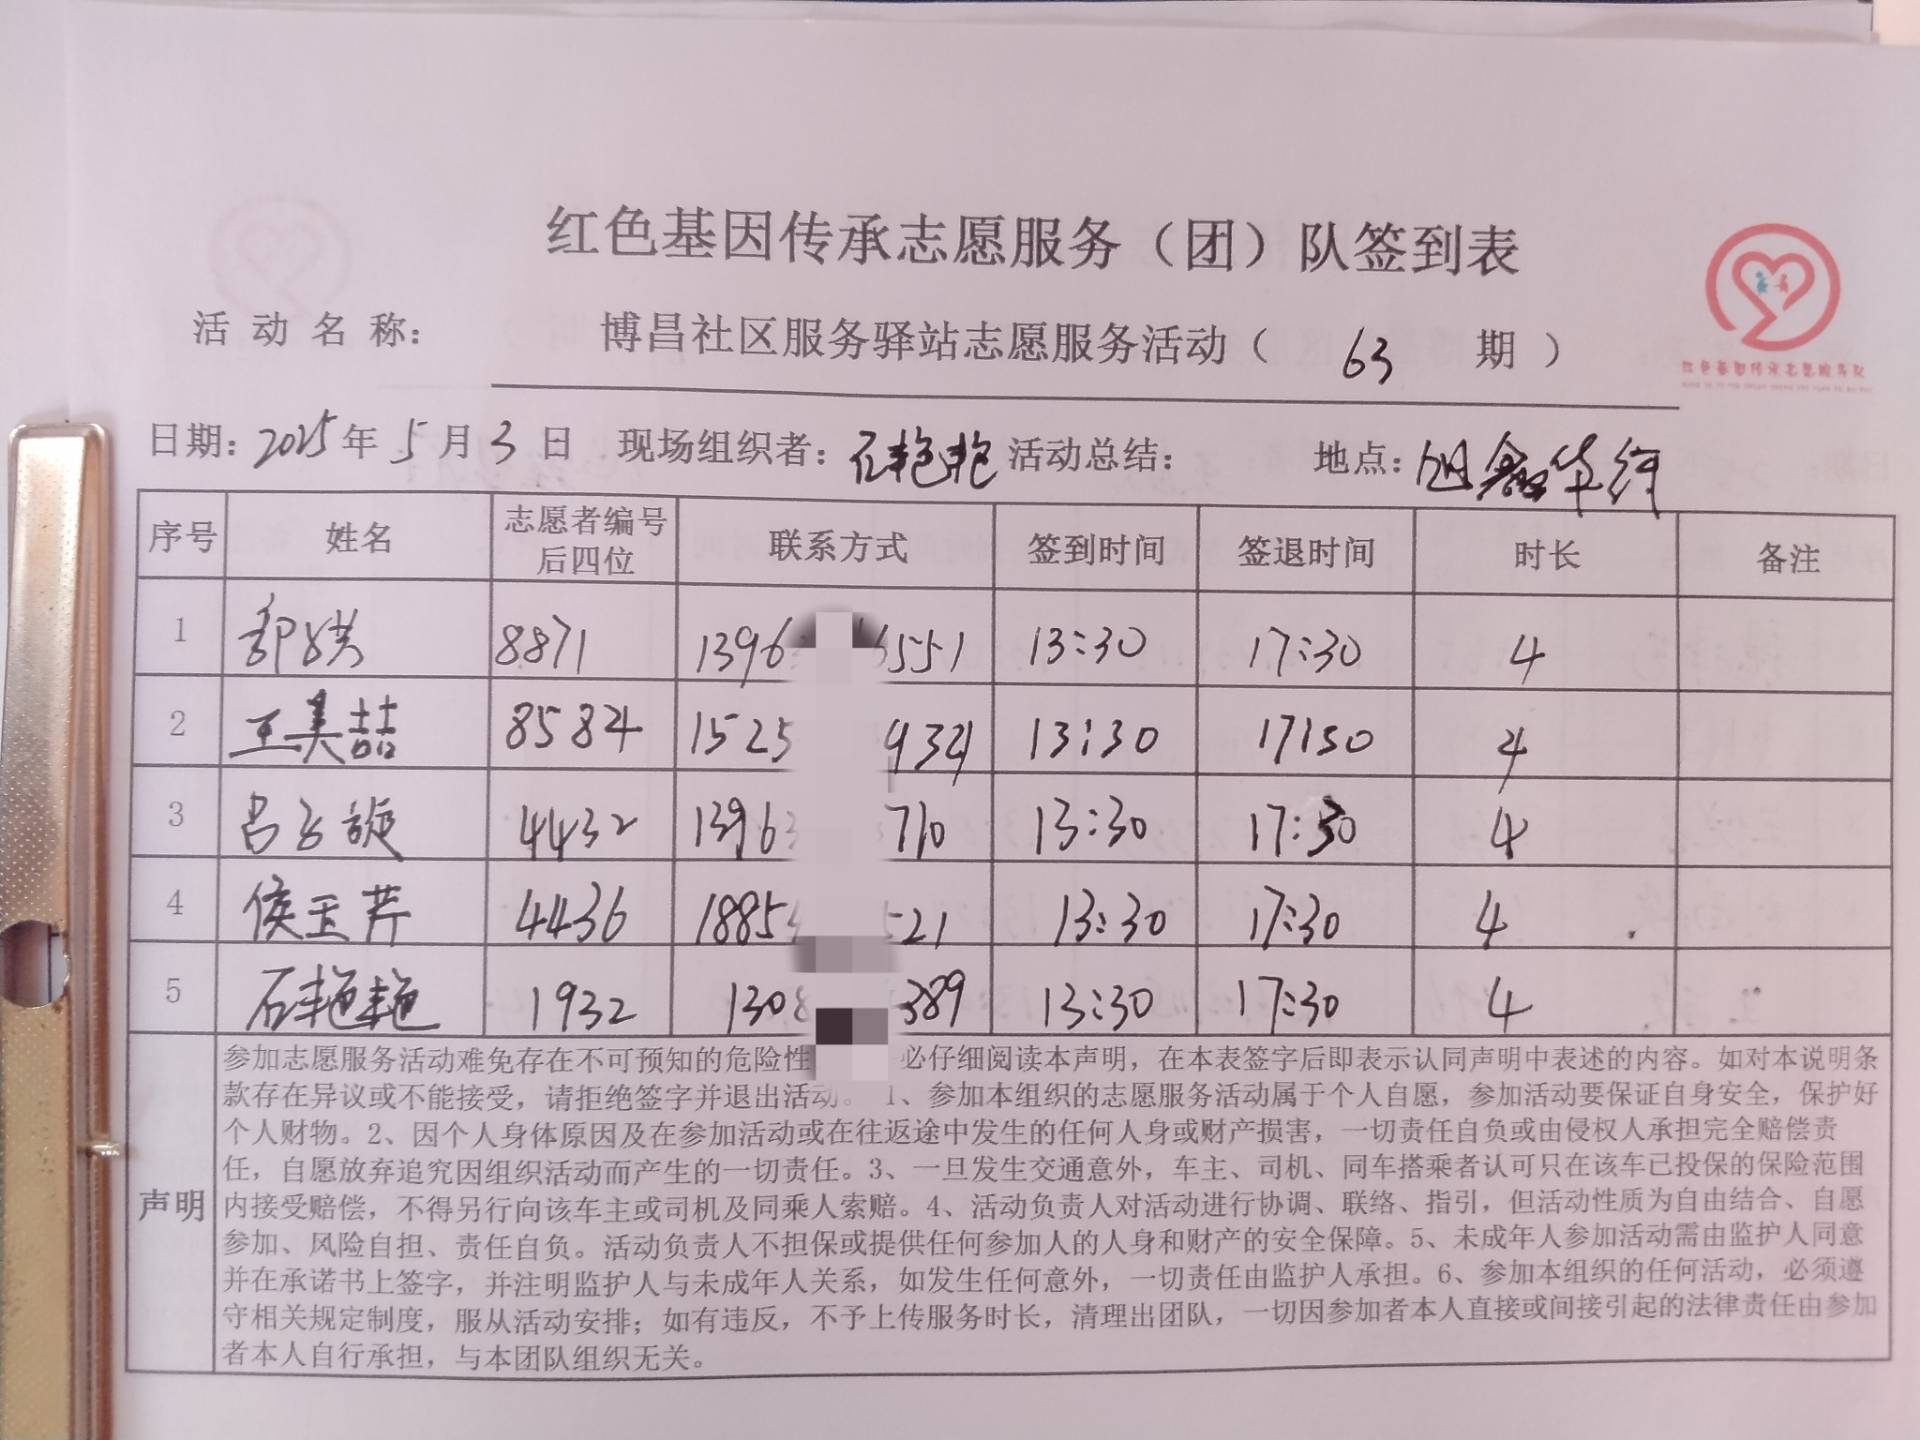 红色基因传承志愿服务（团）队签到表
活动名称： 博昌社区服务驿站志愿服务活动（ 63 期 ）
红色基因传承志愿服务队
日期：2025年5月3日 现场组织者：石艳艳 活动总结： 地点：旭鑫华
序号 姓名 志愿者编号后四位 联系方式 签到时间 签退时间 时长 备注
1 8871 1396 551 13:30 17:30 4
2 王美喆 8584 1525 934 13:30 17:30 4
3 吕云旋 4432 1396 710 13:30 17:30 4
4 侯玉芹 4436 1885 21 13:30 17:30 4
5 石艳艳 1932 130 389 13:30 17:30 4
声明
参加志愿服务活动难免存在不可预知的危险性 必仔细阅读本声明，在本表签字后即表示认同声明中表述的内容。如对本说明条
款存在异议或不能接受，请拒绝签字并退出活动。 1、参加本组织的志愿服务活动属于个人自愿，参加活动要保证自身安全，保护好
个人财物。2、因个人身体原因及在参加活动或在往返途中发生的任何人身或财产损害，一切责任自负或由侵权人承担完全赔偿责
任，自愿放弃追究因组织活动而产生的一切责任。3、一旦发生交通意外，车主、司机、同车搭乘者认可只在该车已投保的保险范围
内接受赔偿，不得另行向该车主或司机及同乘人索赔。4、活动负责人对活动进行协调、联络、指引，但活动性质为自由结合、自愿
参加、风险自担、责任自负。活动负责人不担保或提供任何参加人的人身和财产的安全保障。5、未成年人参加活动需由监护人同意
并在承诺书上签字，并注明监护人与未成年人关系，如发生任何意外，一切责任由监护人承担。6、参加本组织的任何活动，必须遵
守相关规定制度，服从活动安排；如有违反，不予上传服务时长，清理出团队，一切因参加者本人直接或间接引起的法律责任由参加
者本人自行承担，与本团队组织无关。